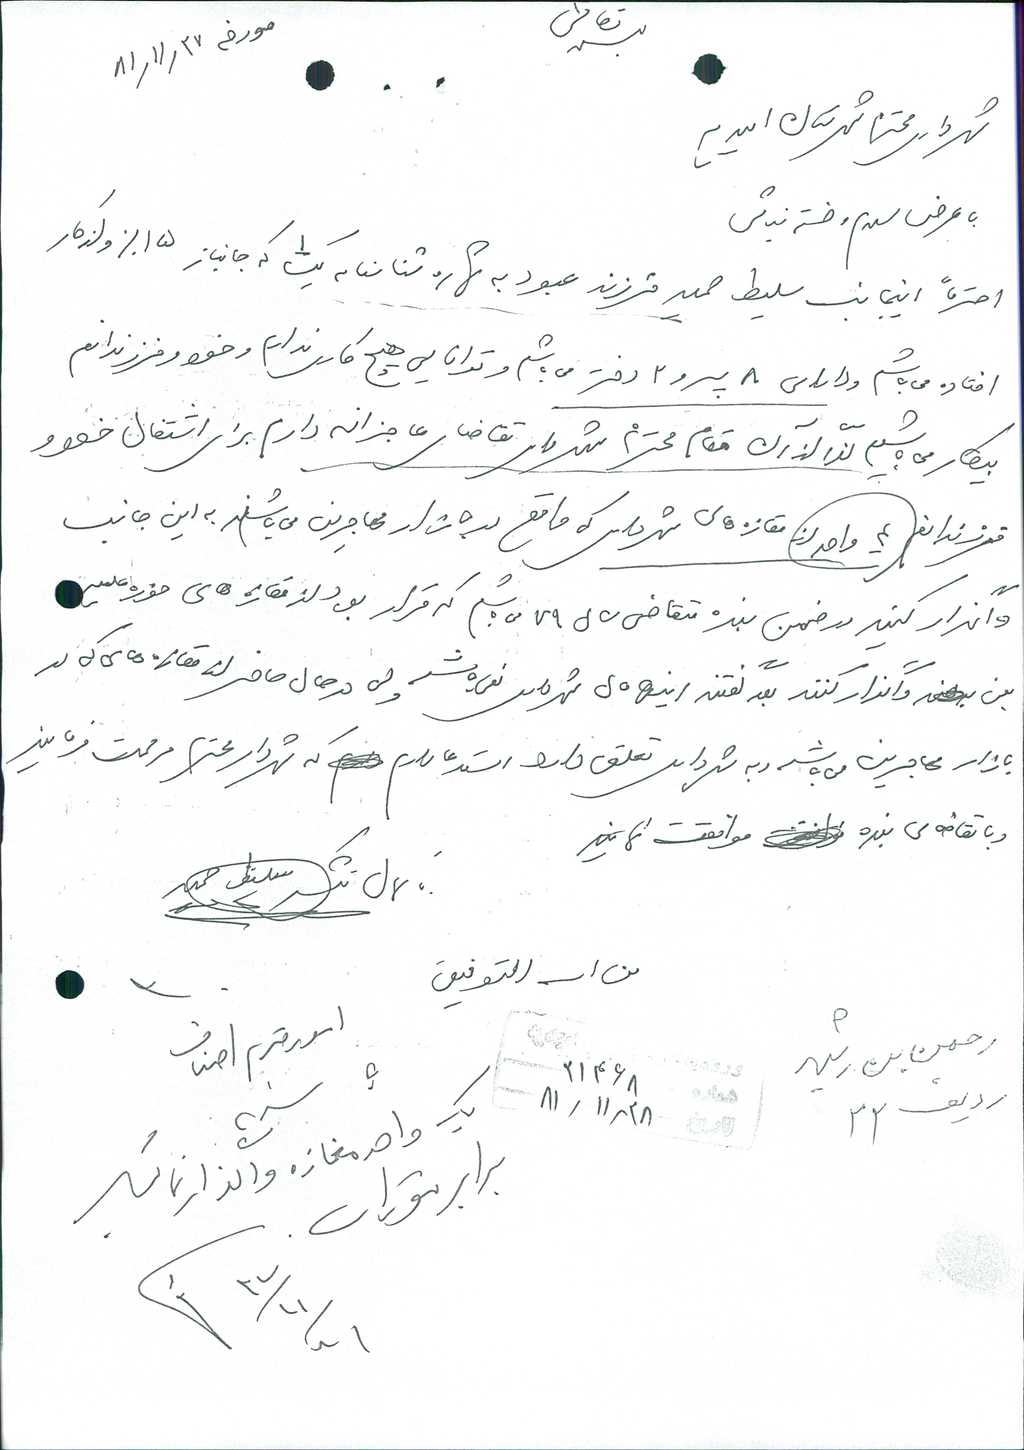 بسمه تعالی
مورخه ۸۱/۱۱/۲۷
شهردار محترم شهرستان امیدیه
با عرض سلام و خسته نباشی
احتراماً اینجانب سلیط حمید فرزند عبود به شماره شناسنامه یک که جانباز و از کار
افتاده می باشم و دارای ۸ پسر و ۲ دختر می باشم و توانایی هیچ کاری ندارم و خود و فرزندانم
بیکار می باشیم لذا از آن مقام محترم شهرداری تقاضای عاجزانه دارم برای اشتغال خود و
فرزندانم واحد از مغازه های شهرداری که واقع در بازار مهاجرین می باشند به این جانب
واگذار کنید در ضمن بنده متقاضی سال ۷۹ می باشم که قرار بود از مغازه های حوزه علمیه
بمن واگذار کنند بعد گفتند اینها مال شهرداری نمی باشد ولی در حال حاضر از مغازه هایی که در
بازار مهاجرین می باشد و به شهرداری تعلق دارد استدعا دارم که شهردار محترم مرحمت فرمایند
و با تقاضای بنده موافقت نمایید
با کمال تشکر سلیط حمید
من الله التوفیق
امور محترم اصناف
یک واحد مغازه واگذار نمائید
برابر مقررات
۸۱/۱۱/۲۷
۳۱۴۶۸
۸۱/۱۱/۲۸
ردیف ۲۳